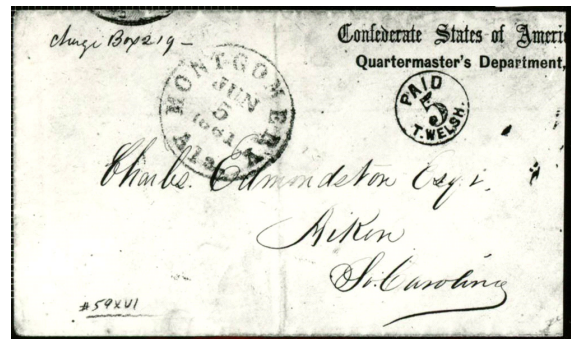 charge Box 219 –
Confederate States of Ameri
Quartermaster's Department,
MONTGOMERY
JUN
5
1861
Ala.
PAID
5
T. WELSH.
Charles. Edmondston Esqr.
Aiken
So. Carolina
#59XU1